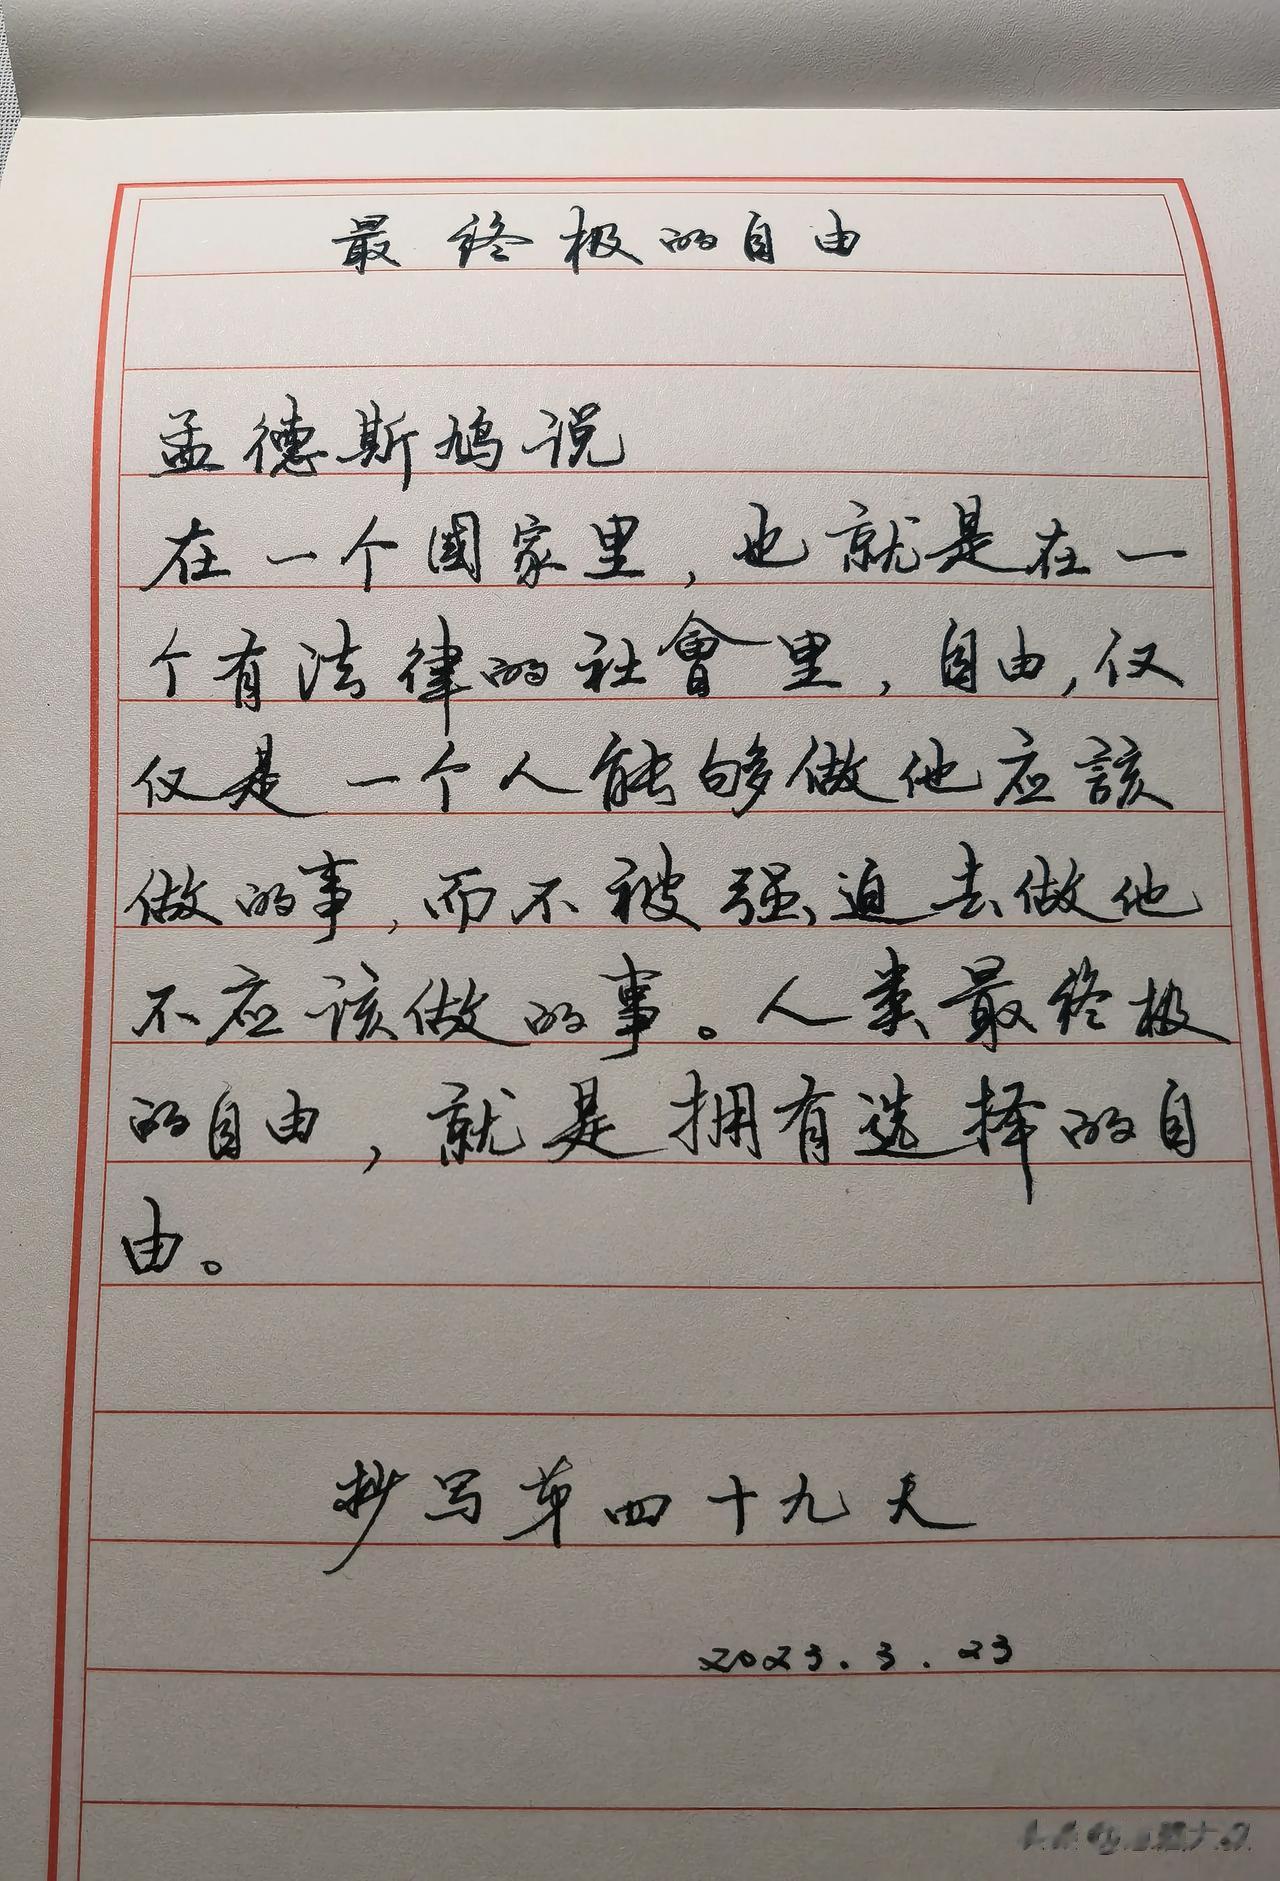 最终极的自由
孟德斯鸠说
在一个國家里，也就是在一
个有法律的社會里，自由，仅
仅是一个人能够做他应該
做的事，而不被强迫去做他
不应该做的事。人类最终极
的自由，就是拥有选择的自
由。
抄写第四十九天
2023.3.23